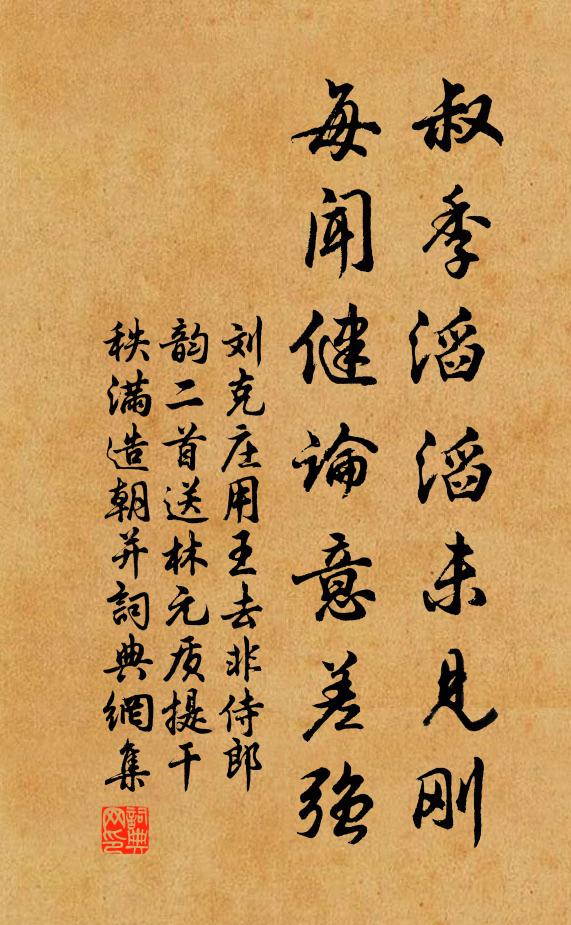 叔季滔滔未见刚
每闻健论意差强
刘克庄用王去非侍郎
韵二首送林元质提干
秩满造朝并詞典網集
詞典
网印